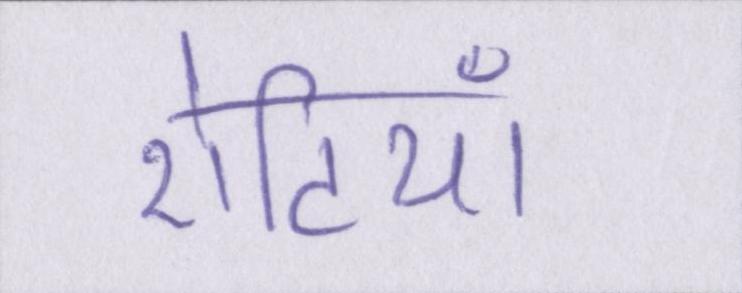 रोटियाँ